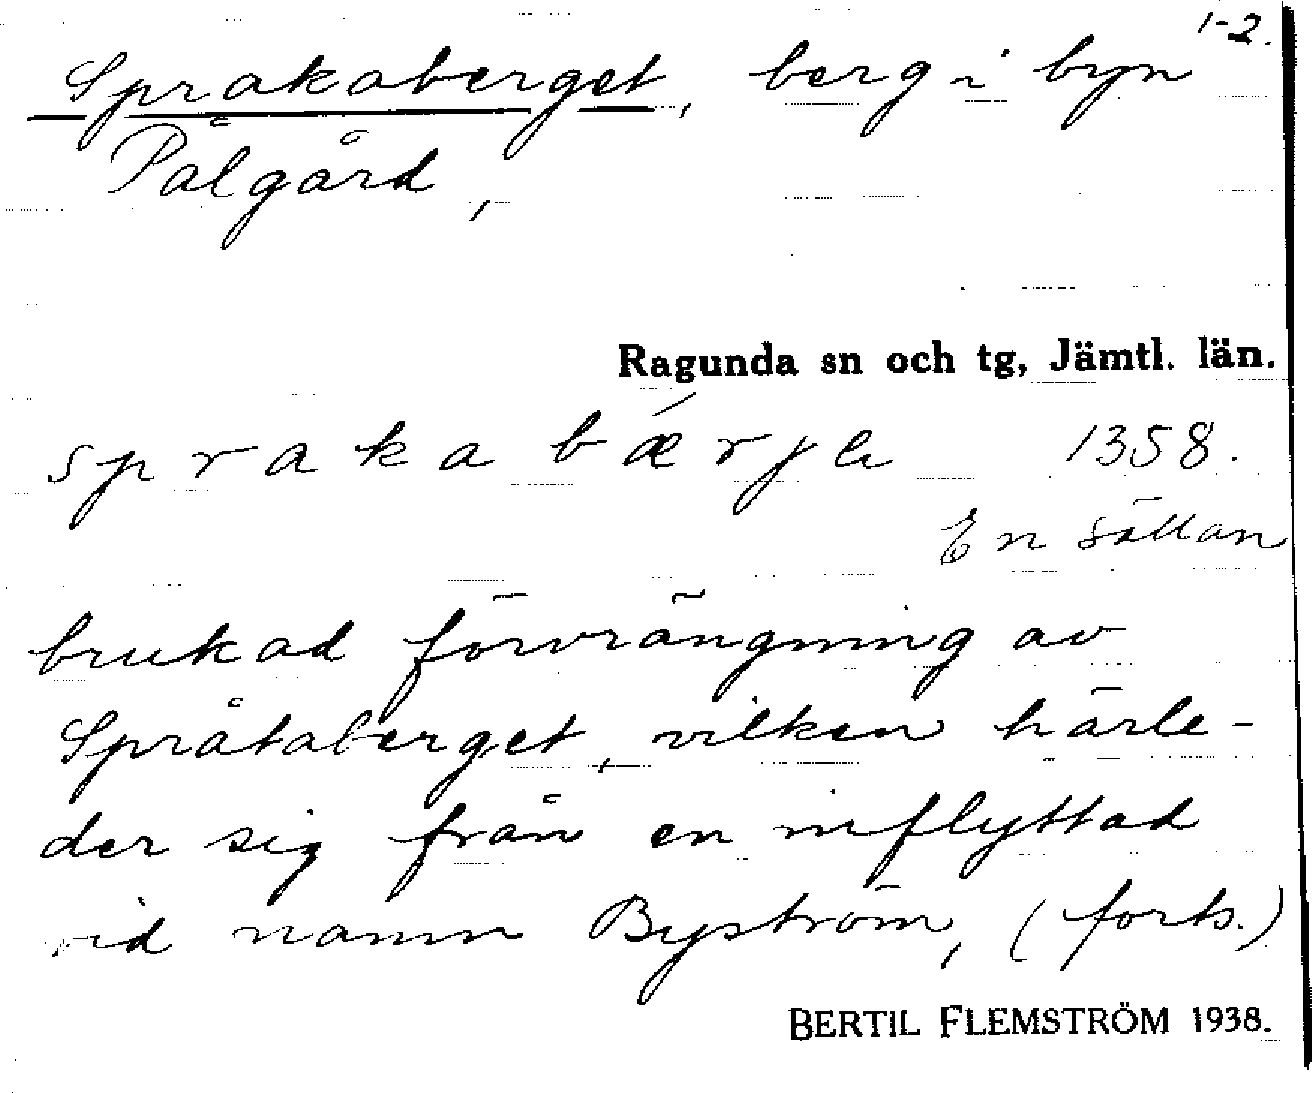 1-2.
Sprakaberget, berg i byn
Pålgård,
Ragunda sn och tg, Jämtl. län.
sprakabǽrje 1358.
En sällan
brukad förvrängning av
Språtaberget, vilken härle-
der sig från en inflyttad
vid namn Byström, (forts.)
BERTIL FLEMSTRÖM 1938.